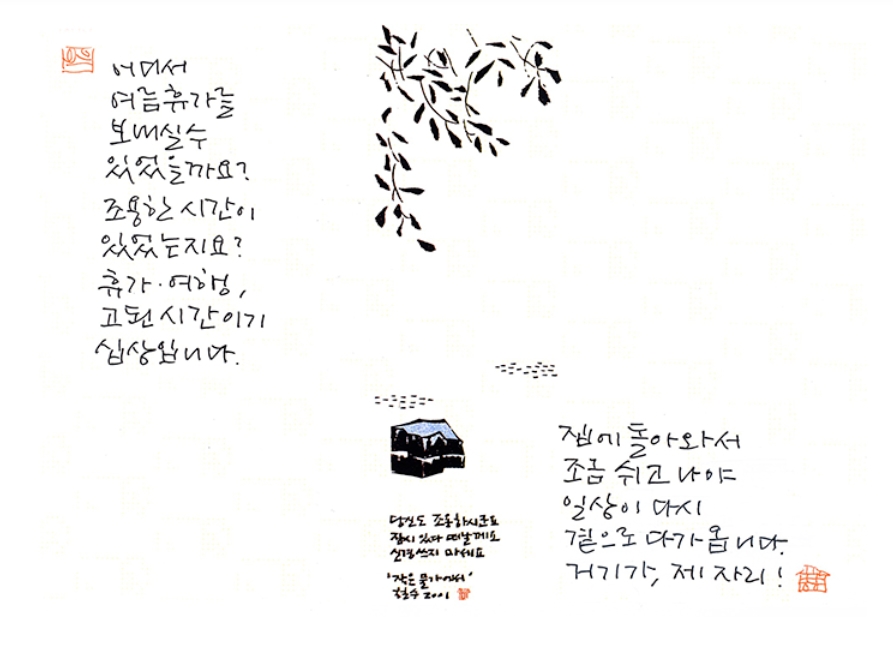 어디서
여름휴가를
보내실 수
있었을까요?
조용한 시간이
있었는지요?
휴가·여행,
고된 시간이기
십상입니다.
당신도 조용하시군요
잠시 있다 떠날께요
신경쓰지 마세요
'작은 물가에서'
철수 2001
집에 돌아와서
조금 쉬고 나야
일상이 다시
곁으로 다가옵니다.
거기가, 제 자리!